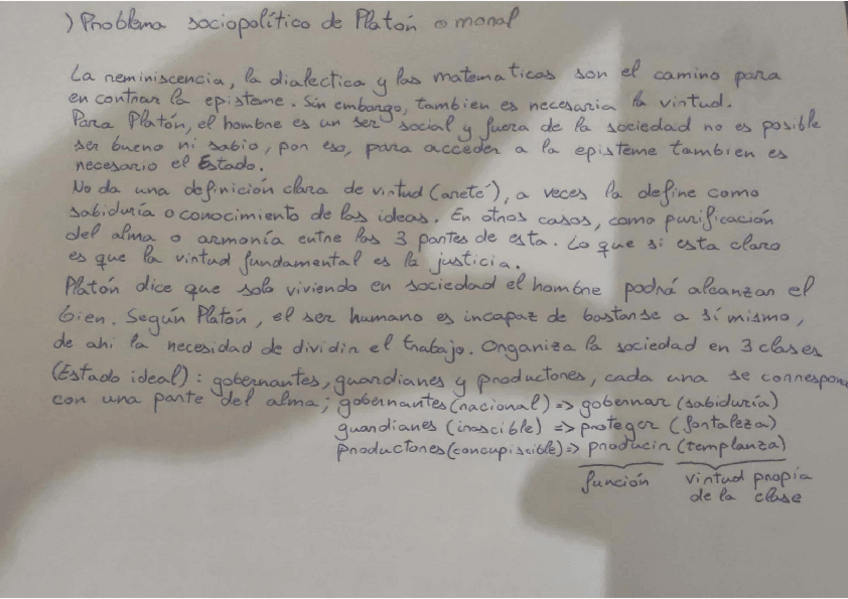 ) Problema sociopolítico de Platón o moral
La reminiscencia, la dialectica y las matematicas son el camino para
encontrar la episteme. Sin embargo, tambien es necesaria la virtud.
Para Platón, el hombre es un ser social y fuera de la sociedad no es posible
ser bueno ni sabio, por eso, para acceder a la episteme tambien es
necesario el Estado.
No da una definición clara de virtud (areté), a veces la define como
sabiduría o conocimiento de las ideas. En otros casos, como purificación
del alma o armonía entre las 3 partes de esta. Lo que si esta claro
es que la virtud fundamental es la justicia.
Platón dice que solo viviendo en sociedad el hombre podrá alcanzar el
bien. Según Platón, el ser humano es incapaz de bastarse a sí mismo,
de ahi la necesidad de dividir el trabajo. Organiza la sociedad en 3 clases
(Estado ideal): gobernantes, guardianes y productores, cada una se correspon
con una parte del alma; gobernantes (racional) => gobernar (sabiduría)
guardianes (irascible) => proteger (fortaleza)
productores (concupiscible) => producir (templanza)
función virtud propia
de la clase